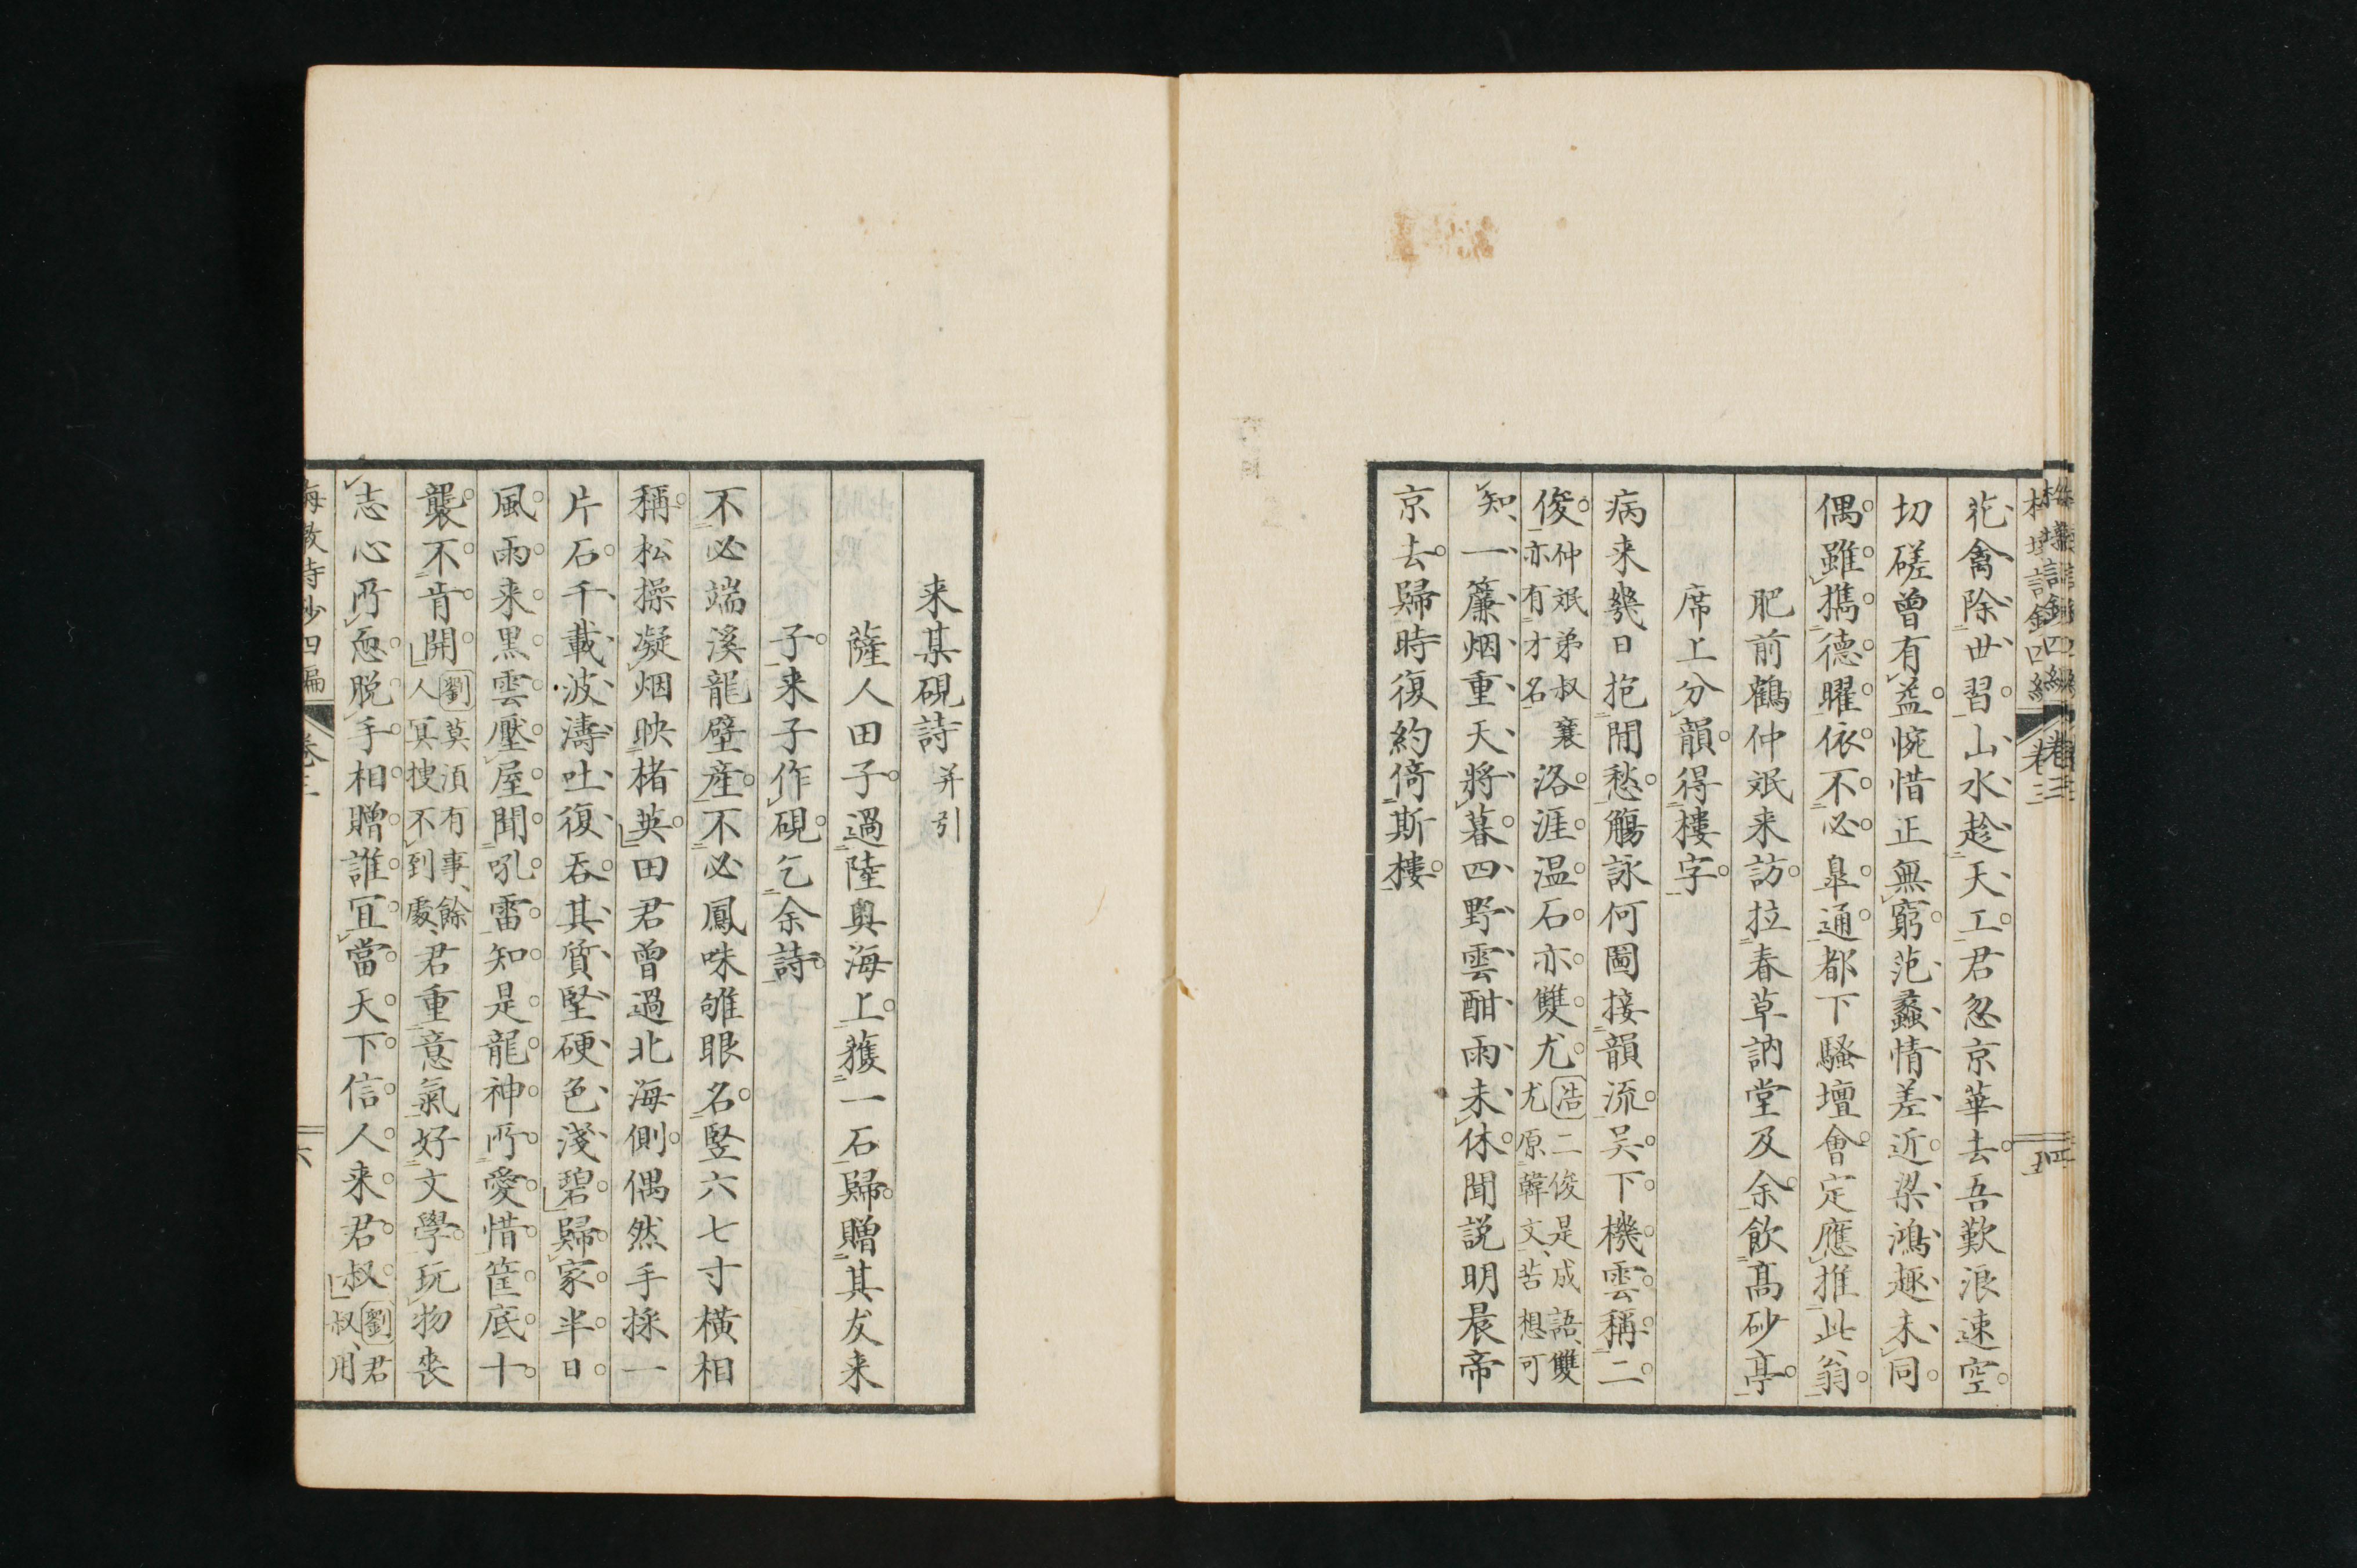 花禽除世習山水趁天工君忽京華去吾歎浪速空
切磋曽有益惋惜正無窮范蠡情差近梁鴻趣未同
偶雖攜德曜依不必皐通都下騷壇會定應推此翁
肥前鶴仲泯来訪拉春草訥堂及余飲髙砂亭
席上分韻得樓字
病来幾日抱閒愁觴詠何圖接韻流吴下機雲稱二
俊仲泯弟叔襄亦有才名洛涯温石亦雙尤浩二俊是成語雙尤原韓文苦想可
知一簾烟重天將暮四野雲酣雨未休聞説明晨帝
京去歸時復約倚斯樓
来某硯詩并引
薩人田子過陸奥海上獲一石歸贈其友来
子来子作硯乞余詩
不必端溪龍壁産不必鳳咮雊眼名竪六七寸横相
稱松操凝烟映楮英田君曾過北海側偶然手採一
片石千載波濤吐復吞其質堅硬色淺碧歸家半日
風雨来黒雲壓屋聞吼雷知是龍神所愛惜筐底十
襲不肯開劉莫須有事餘人冥搜不到處君重意氣好文學玩物喪
志心所恧脱手相贈誰冝當天下信人来君叔劉君叔用